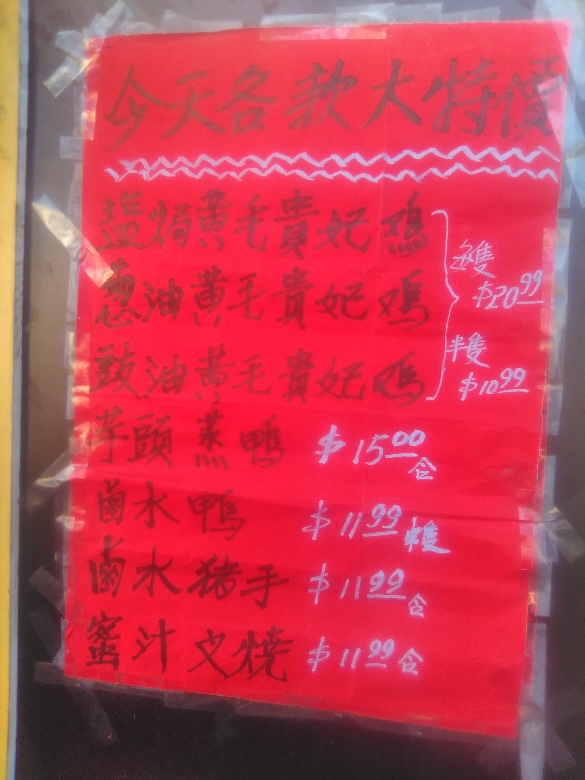 今天各款大特價
盐焗黄毛貴妃鸡
葱油黄毛貴妃鸡
豉油黄毛貴妃鸡
每隻
$20.99
半隻
$10.99
芋頭蒸鴨 $15.00 仺
鹵水鴨 $11.99 半隻
鹵水猪手 $11.99 仺
蜜汁叉燒 $11.99 仺